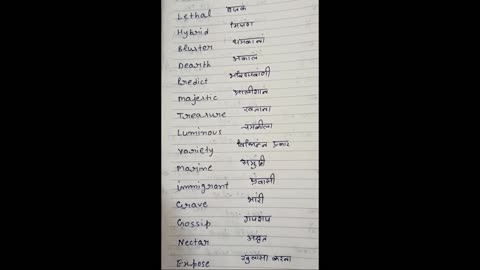 Lethal घातक
Hybrid मिश्रण
Bluster धमकाना
Dearth अकाल
Predict भविष्यवाणी
Majestic आलीशान
Treasure खजाना
Luminous चमकीला
Variety विभिन्न प्रकार
Marine समुद्री
immigrant प्रवासी
Grave भारी
Gossip गपशप
Nectar अमृत
Expose खुलासा करना